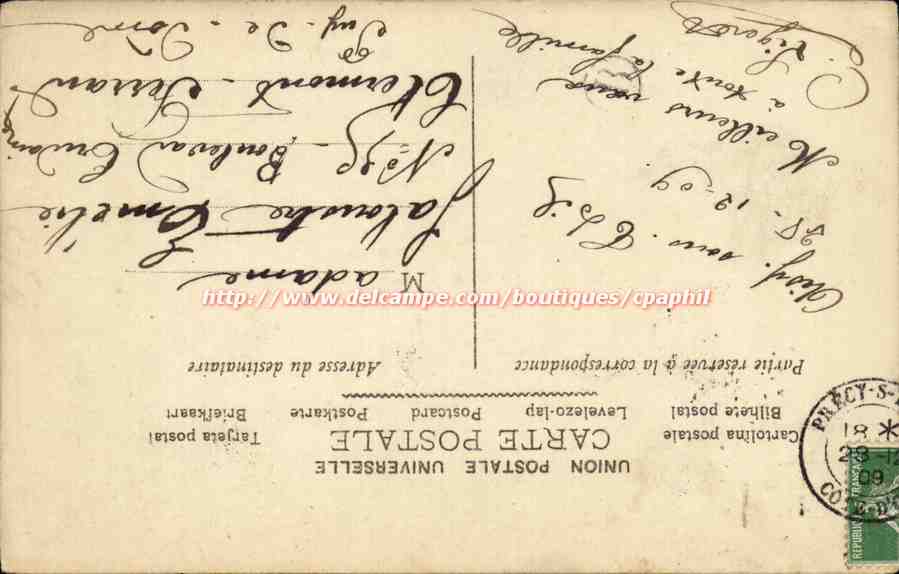 UNION POSTALE UNIVERSELLE
CARTE POSTALE
Cartolina postale
Tarjeta postal
Bilhete postal
Levelezo-lap
Postcard
Postkarte
Briefkaart
Partie réservée à la correspondance
Adresse du destinataire
28 - 12 - 09
Meilleurs vœux
à toute la famille
Madame
Emelie
No 38 - Boulevar
Clermont - Ferrand
Puy - De - Dôme
PRÉCY-S-
18 *
28 -12
09
COTE-D'
REPUBLIQUE FRANÇAISE
http://www.delcampe.com/boutiques/cpaphil